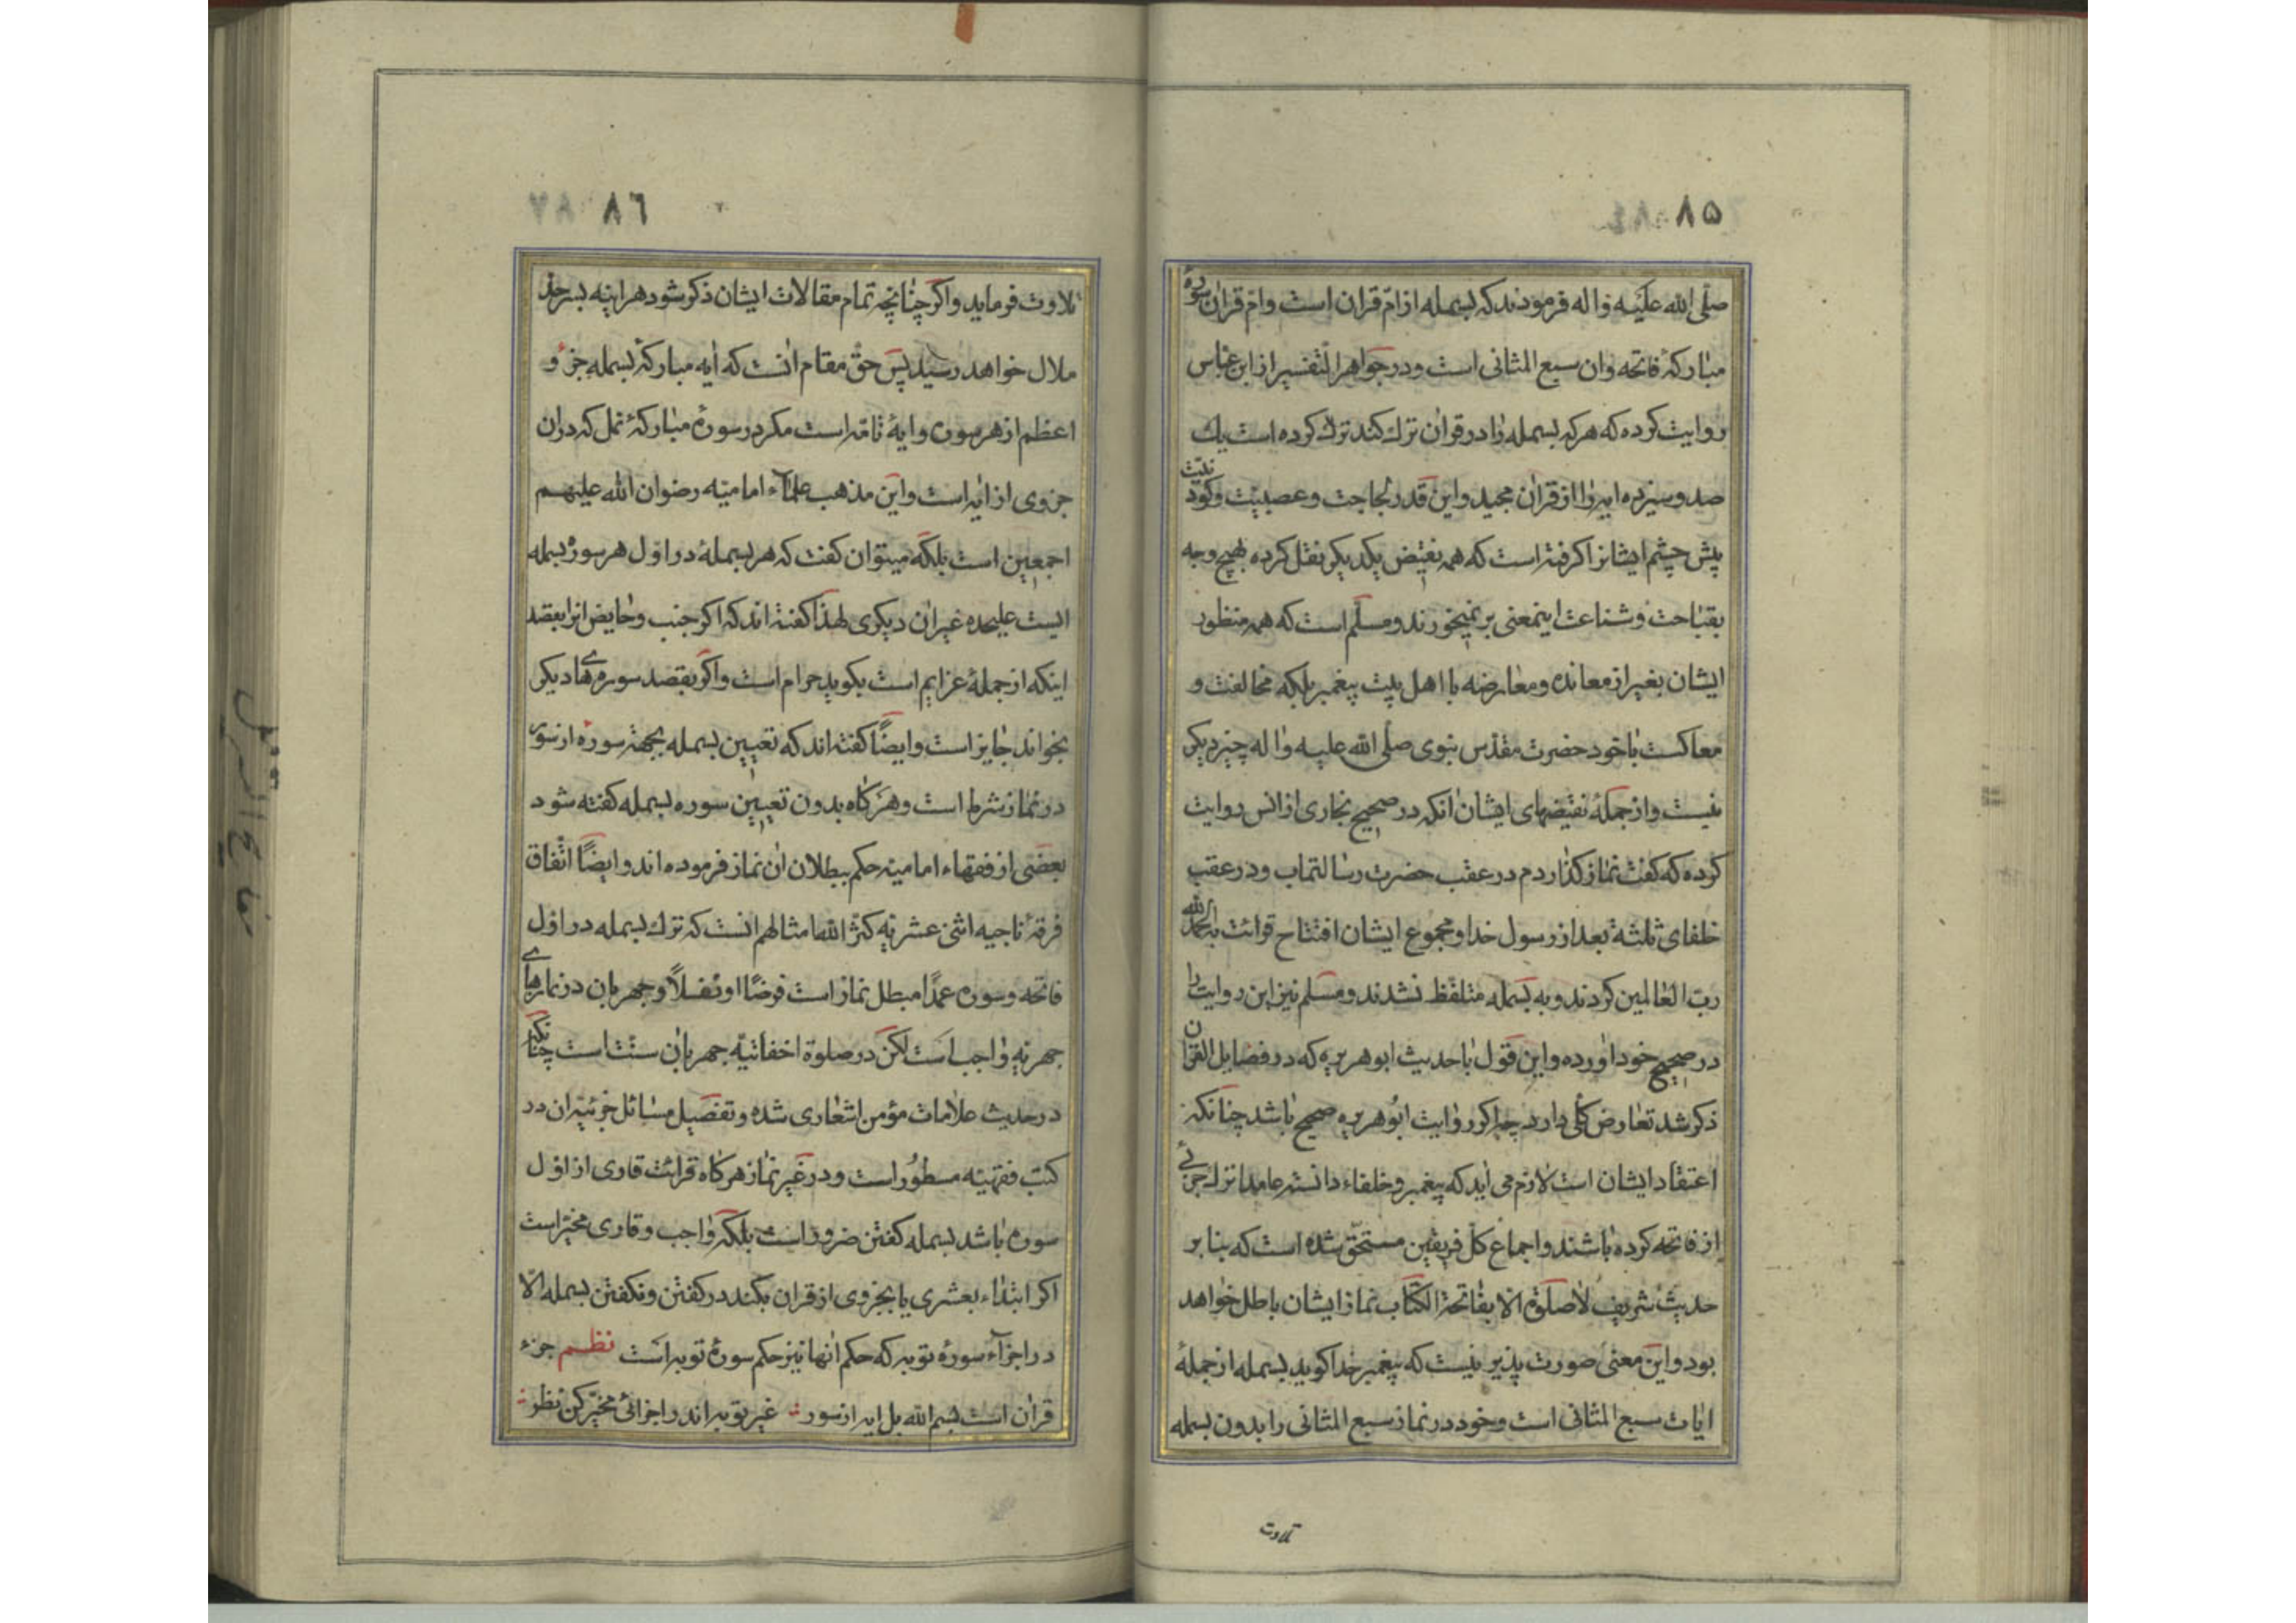 ۸۵
صلی الله علیه واله فرمودند که بسمله از ام قران است وام قران سوره
مبارکهٔ فاتحه وان سبع المثانی است ودر جواهر التفسیر از ابن عباس
روایت کرده که هرکه بسمله را در قران ترک کند ترک کرده است یک
صد وسیزده ایه را از قران مجید واین قدر لجاجت وعصبیت وکودنیت
پیش چشم ایشانرا کرفته است که همه نقیض یکدیکر نقل کرده بهیچ وجه
بقباحت وشناعت اینمعنی بر نمیخورند ومسلم است که همه منظور
ایشان بغیر از معانده ومعارضه با اهل بیت پیغمبر بلکه مخالفت و
معاکست با خود حضرت مقدس نبوی صلی الله علیه واله چیز دیکر
نیست واز جملهٔ نقیضهای ایشان انکه در صحیح بخاری از انس روایت
کرده که کفت نماز کذاردم در عقب حضرت رسالتماب ودر عقب
خلفای ثلثه بعد از رسول خدا ومجموع ایشان افتتاح قرائت بالحمد لله
رب العالمین کردند وبه بسمله متلفظ نشدند ومسلم نیز این روایت را
در صحیح خود اورده واین قول با حدیث ابوهریره که در فضایل القران
ذکر شد تعارض کلی دارد چه اکر روایت ابوهریره صحیح باشد چنانکه
اعتقاد ایشان است لازم می اید که پیغمبر وخلفاء دانسته عامدا ترک جزئی
از فاتحه کرده باشند واجماع کل فریقین مستحق شده است که بنا بر
حدیث شریف لاصلوة الا بفاتحة الکتاب نماز ایشان باطل خواهد
بود واین معنی صورت پذیر نیست که پیغمبر خدا کوید بسمله از جملهٔ
ایات سبع المثانی است وخود در نماز سبع المثانی را بدون بسمله
تلاوت
۸۶
تلاوت فرماید واکر چنانچه تمام مقالات ایشان ذکر شود هراینه بسرحد
ملال خواهد رسید پس حق مقام انست که ایه مبارکهٔ بسمله جزء و
اعظم از هر سوره وایهٔ تامه است مکر در سورهٔ مبارکهٔ نمل که دران
جزوی از ایه است واین مذهب علماء امامیه رضوان الله علیهم
اجمعین است بلکه میتوان کفت که هر بسملهٔ در اول هر سوره بسمله
ایست علیحده غیران دیکری لهذا کفته اند که اکر جنب وحایض انرا بقصد
اینکه از جملهٔ عزایم است بکوید حرام است واکر بقصد سوره های دیکر
بخواند جایز است وایضاً کفته اند که تعیین بسمله بجهة سوره از سور
در نماز شرط است وهرکاه بدون تعیین سوره بسمله کفته شود
بعضی از فقهاء امامیه حکم ببطلان ان نماز فرموده اند وایضاً اتفاق
فرقهٔ ناجیه اثنی عشریه کثر الله امثالهم انست که ترک بسمله در اول
فاتحه وسوره عمداً مبطل نماز است فرضاً او نفلاً وجهر بان در نمازهای
جهریه واجب است لکن در صلوة اخفاتیه جهر بان سنت است چنانکه
در حدیث علامات مؤمن اشعاری شده وتفصیل مسائل جزئیه ان در
کتب فقهیه مسطور است ودر غیر نماز هرکاه قرائت قاری از اول
سوره باشد بسمله کفتن ضرور است بلکه واجب وقاری مخیر است
اکر ابتداء بعشری یا بجزوی از قران بکند در کفتن ونکفتن بسمله الا
در اجزاء سوره توبه که حکم انها نیز حکم سورهٔ توبه است نظم جزء
قران است بسم الله بل ایه از سور غیر توبه اندر اجزائی مخیر کن نظر